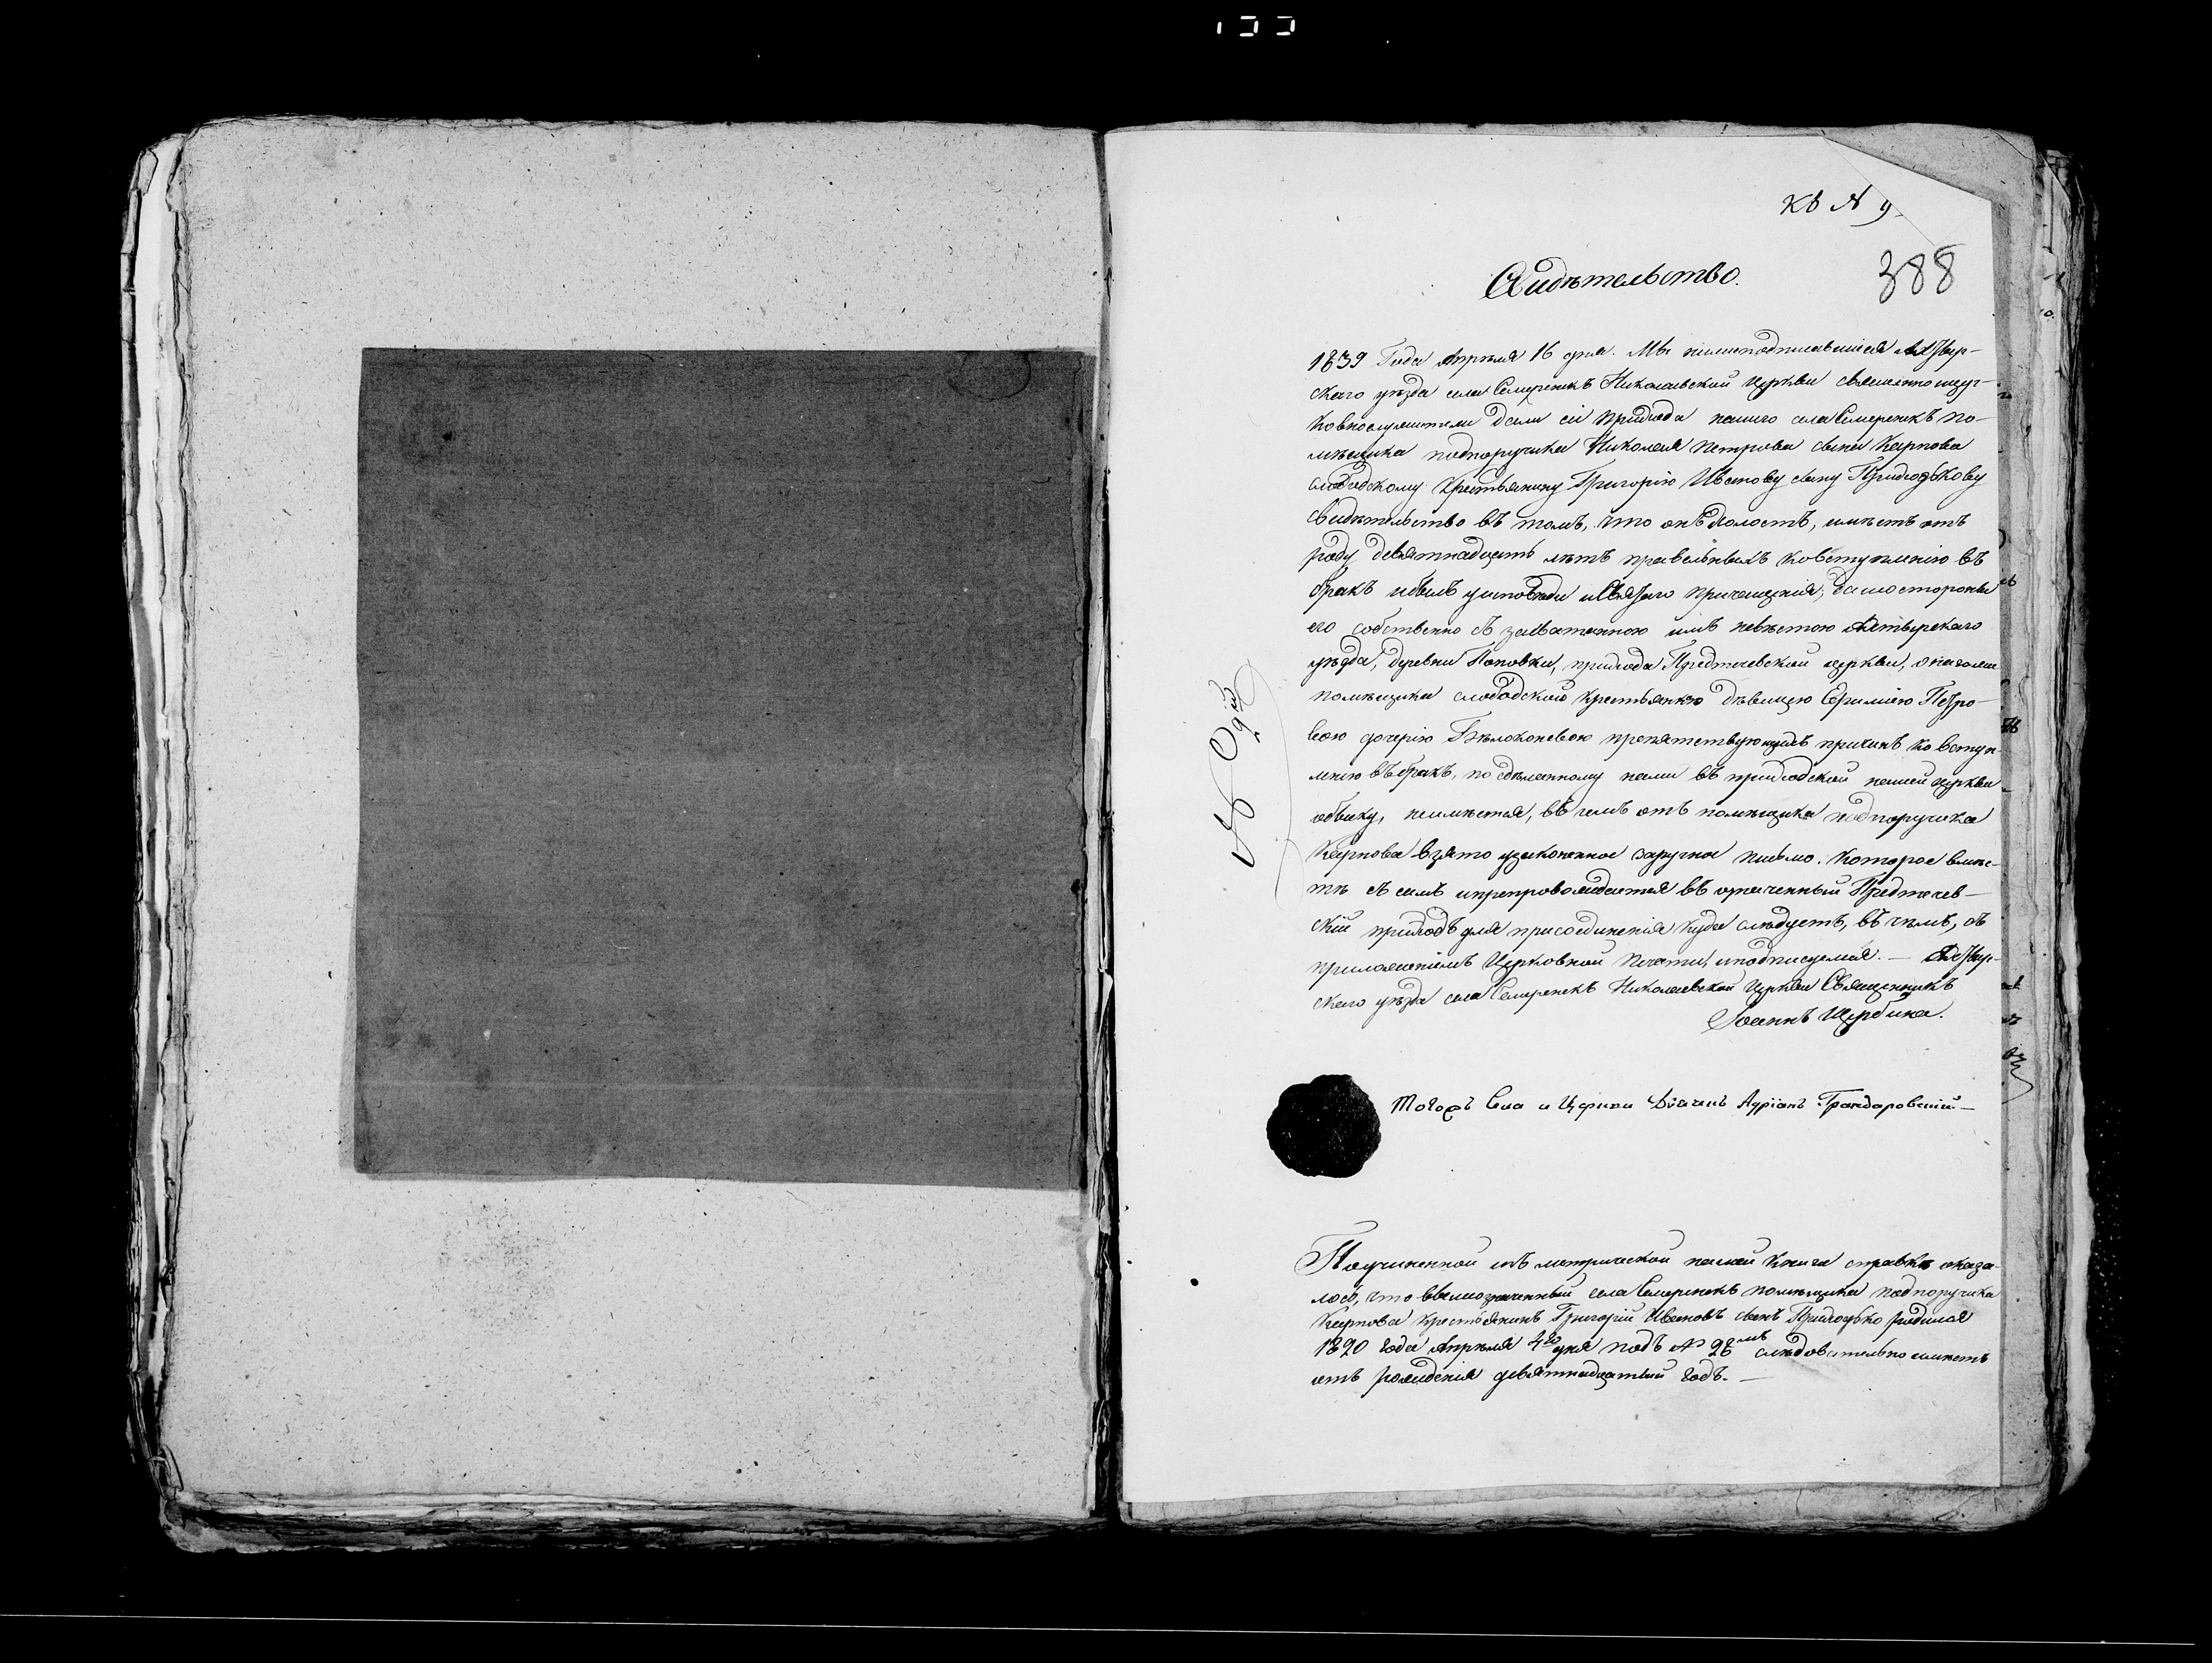 Къ № 9.
388
Свидѣтельство.
1839 Года Апрѣля 16 дня. Мы нижеподписавшіеся Ахтыр-
скаго уѣзда села Семеренекъ Николаевской церкви священноицер-
ковнослужители дали сіе прихода нашего села Семеренекъ по-
мѣщика подпоручика Николая Петрова сына Карпова
слободскому крестьянину Григорію Иванову сыну Приходькову
свидѣтельство въ томъ, что онъ холостъ, имѣетъ отъ
роду девятнадцать лѣтъ правельныхъ ковступленію въ
бракъ ибылъ уисповѣди иСвятаго причащенія, дасостороны
его собственно съ засватанною имъ невѣстою Ахтырскаго
уѣзда, деревни Поповки, прихода Предтечевской церкви,
помѣщика слободскою крестьянкою дѣвицею Ефиміею Петро-
вою дочерію Бѣлоконевою препятствующихъ причинъ ко вступ-
ленію въ бракъ, по сдѣланному нами въ приходской нашей церкви
обыску, неимѣется, въ чемъ отъ помѣщика подпоручика
Карпова взято узаконенное заручное письмо. которое вмѣс-
тѣ съ симъ ипрепровождается въ означенный Предтечев-
скій приходъ для присоединенія куда слѣдуетъ, въ чемъ, съ
приложеніемъ Церковной печати, иподписуемся. — Ахтыр-
скаго уѣзда села Семеренекъ Николаевской Церкви Священникъ
Іоаннъ Щербина.
Тогожъ Села и Церкви Дьячекъ Адріанъ
Поучиненной изъ метрической нашей книги справкѣ оказа-
лось, что вышеозначенный села Семеренекъ помѣщика подпоручика
Карпова крестьянинъ Григорій Ивановъ сынъ Приходько родился
1820 года Апрѣля 4го дня подъ № 28мъ слѣдовательно имѣетъ
отъ рожденія девятнадцатый годъ. —